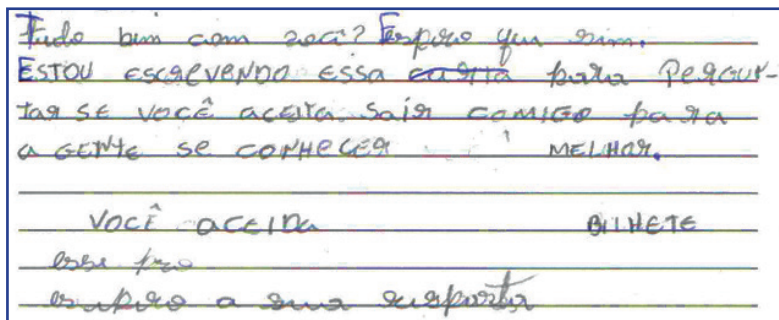 Tudo bem com você? Espero que sim.
ESTOU ESCREVENDO ESSA carta para PERGUN-
TAR SE VOCÊ ACEITA SAIR COMIGO para
a GENTE SE CONHECER MELHOR.
VOCÊ ACEIDA BILHETE
esse pro
espero a sua resposta